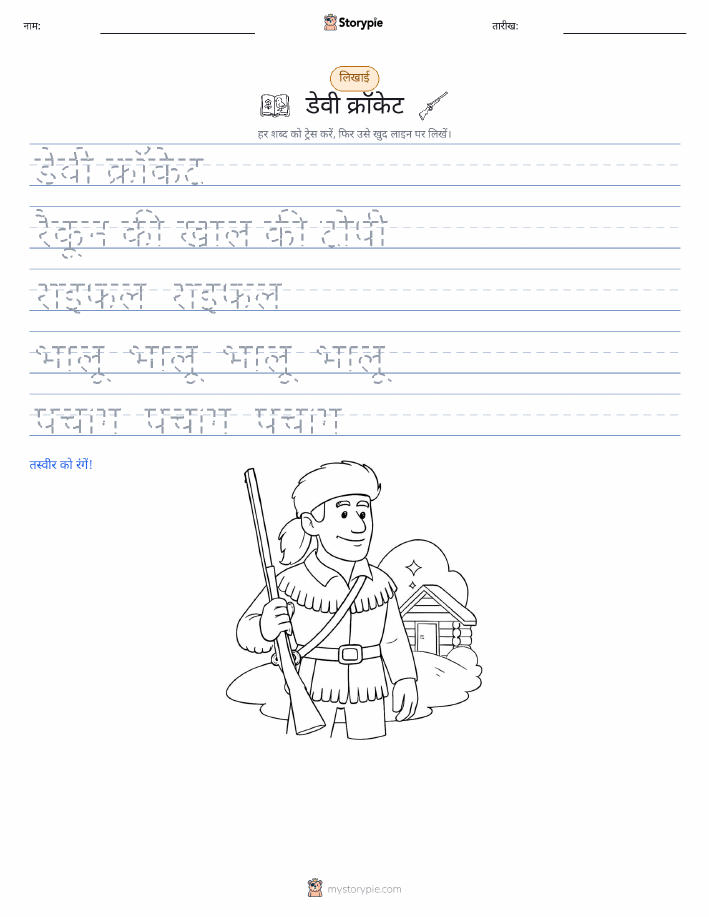 नाम:
Storypie
तारीख:
लिखाई
डेवी क्रॉकेट
हर शब्द को ट्रेस करें, फिर उसे खुद लाइन पर लिखें।
डेवी क्रॉकेट
रैकून की खाल की टोपी
राइफल राइफल
भालू भालू भालू भालू
पचाग पचाग पचाग
तस्वीर को रंगें!
mystorypie.com